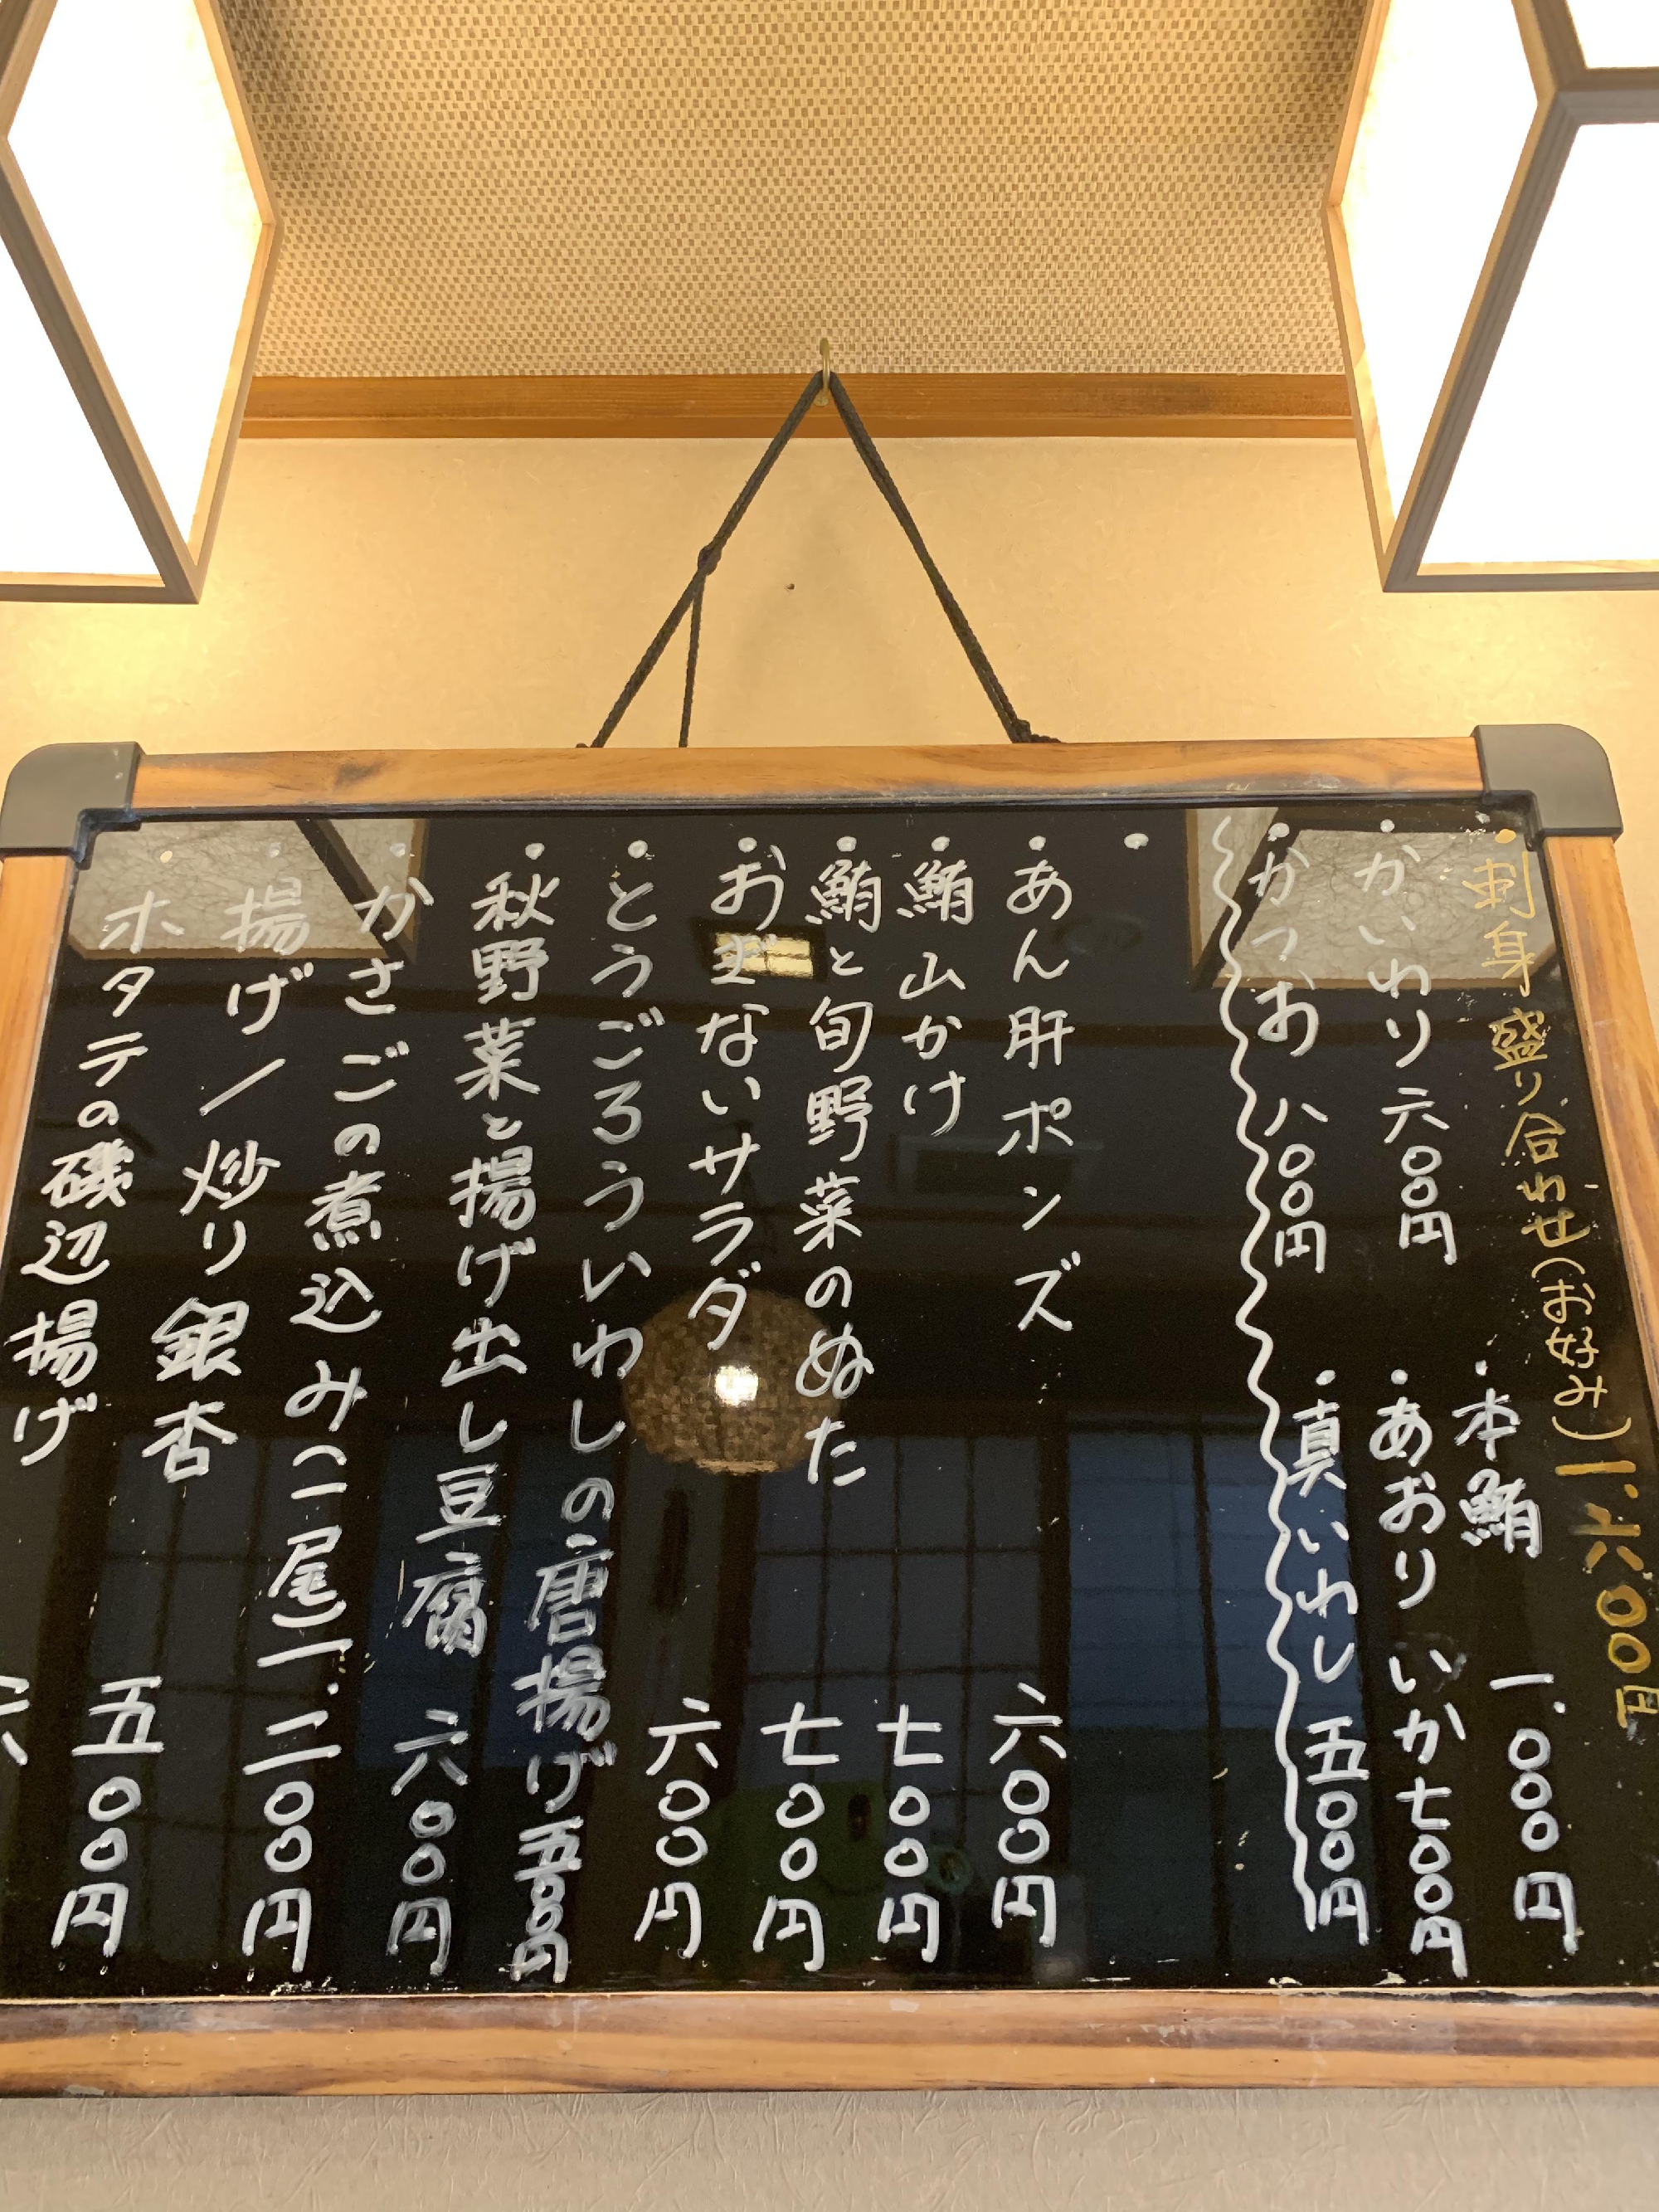 刺身盛り合わせ(お好み)一.六〇〇円
本鮪 一.〇〇〇円
かいわり六〇〇円
あおりいか七〇〇円
かつお 八〇〇円
真いわし 五〇〇円
あん肝ポンズ 六〇〇円
鮪山かけ 七〇〇円
鮪と旬野菜のぬた 七〇〇円
おまかないサラダ 六〇〇円
とうごろういわしの唐揚げ 五〇〇円
秋野菜と揚げ出し豆腐 六〇〇円
かさごの煮込み(一尾)一.二〇〇円
揚げ/炒り銀杏 五〇〇円
ホタテの磯辺揚げ